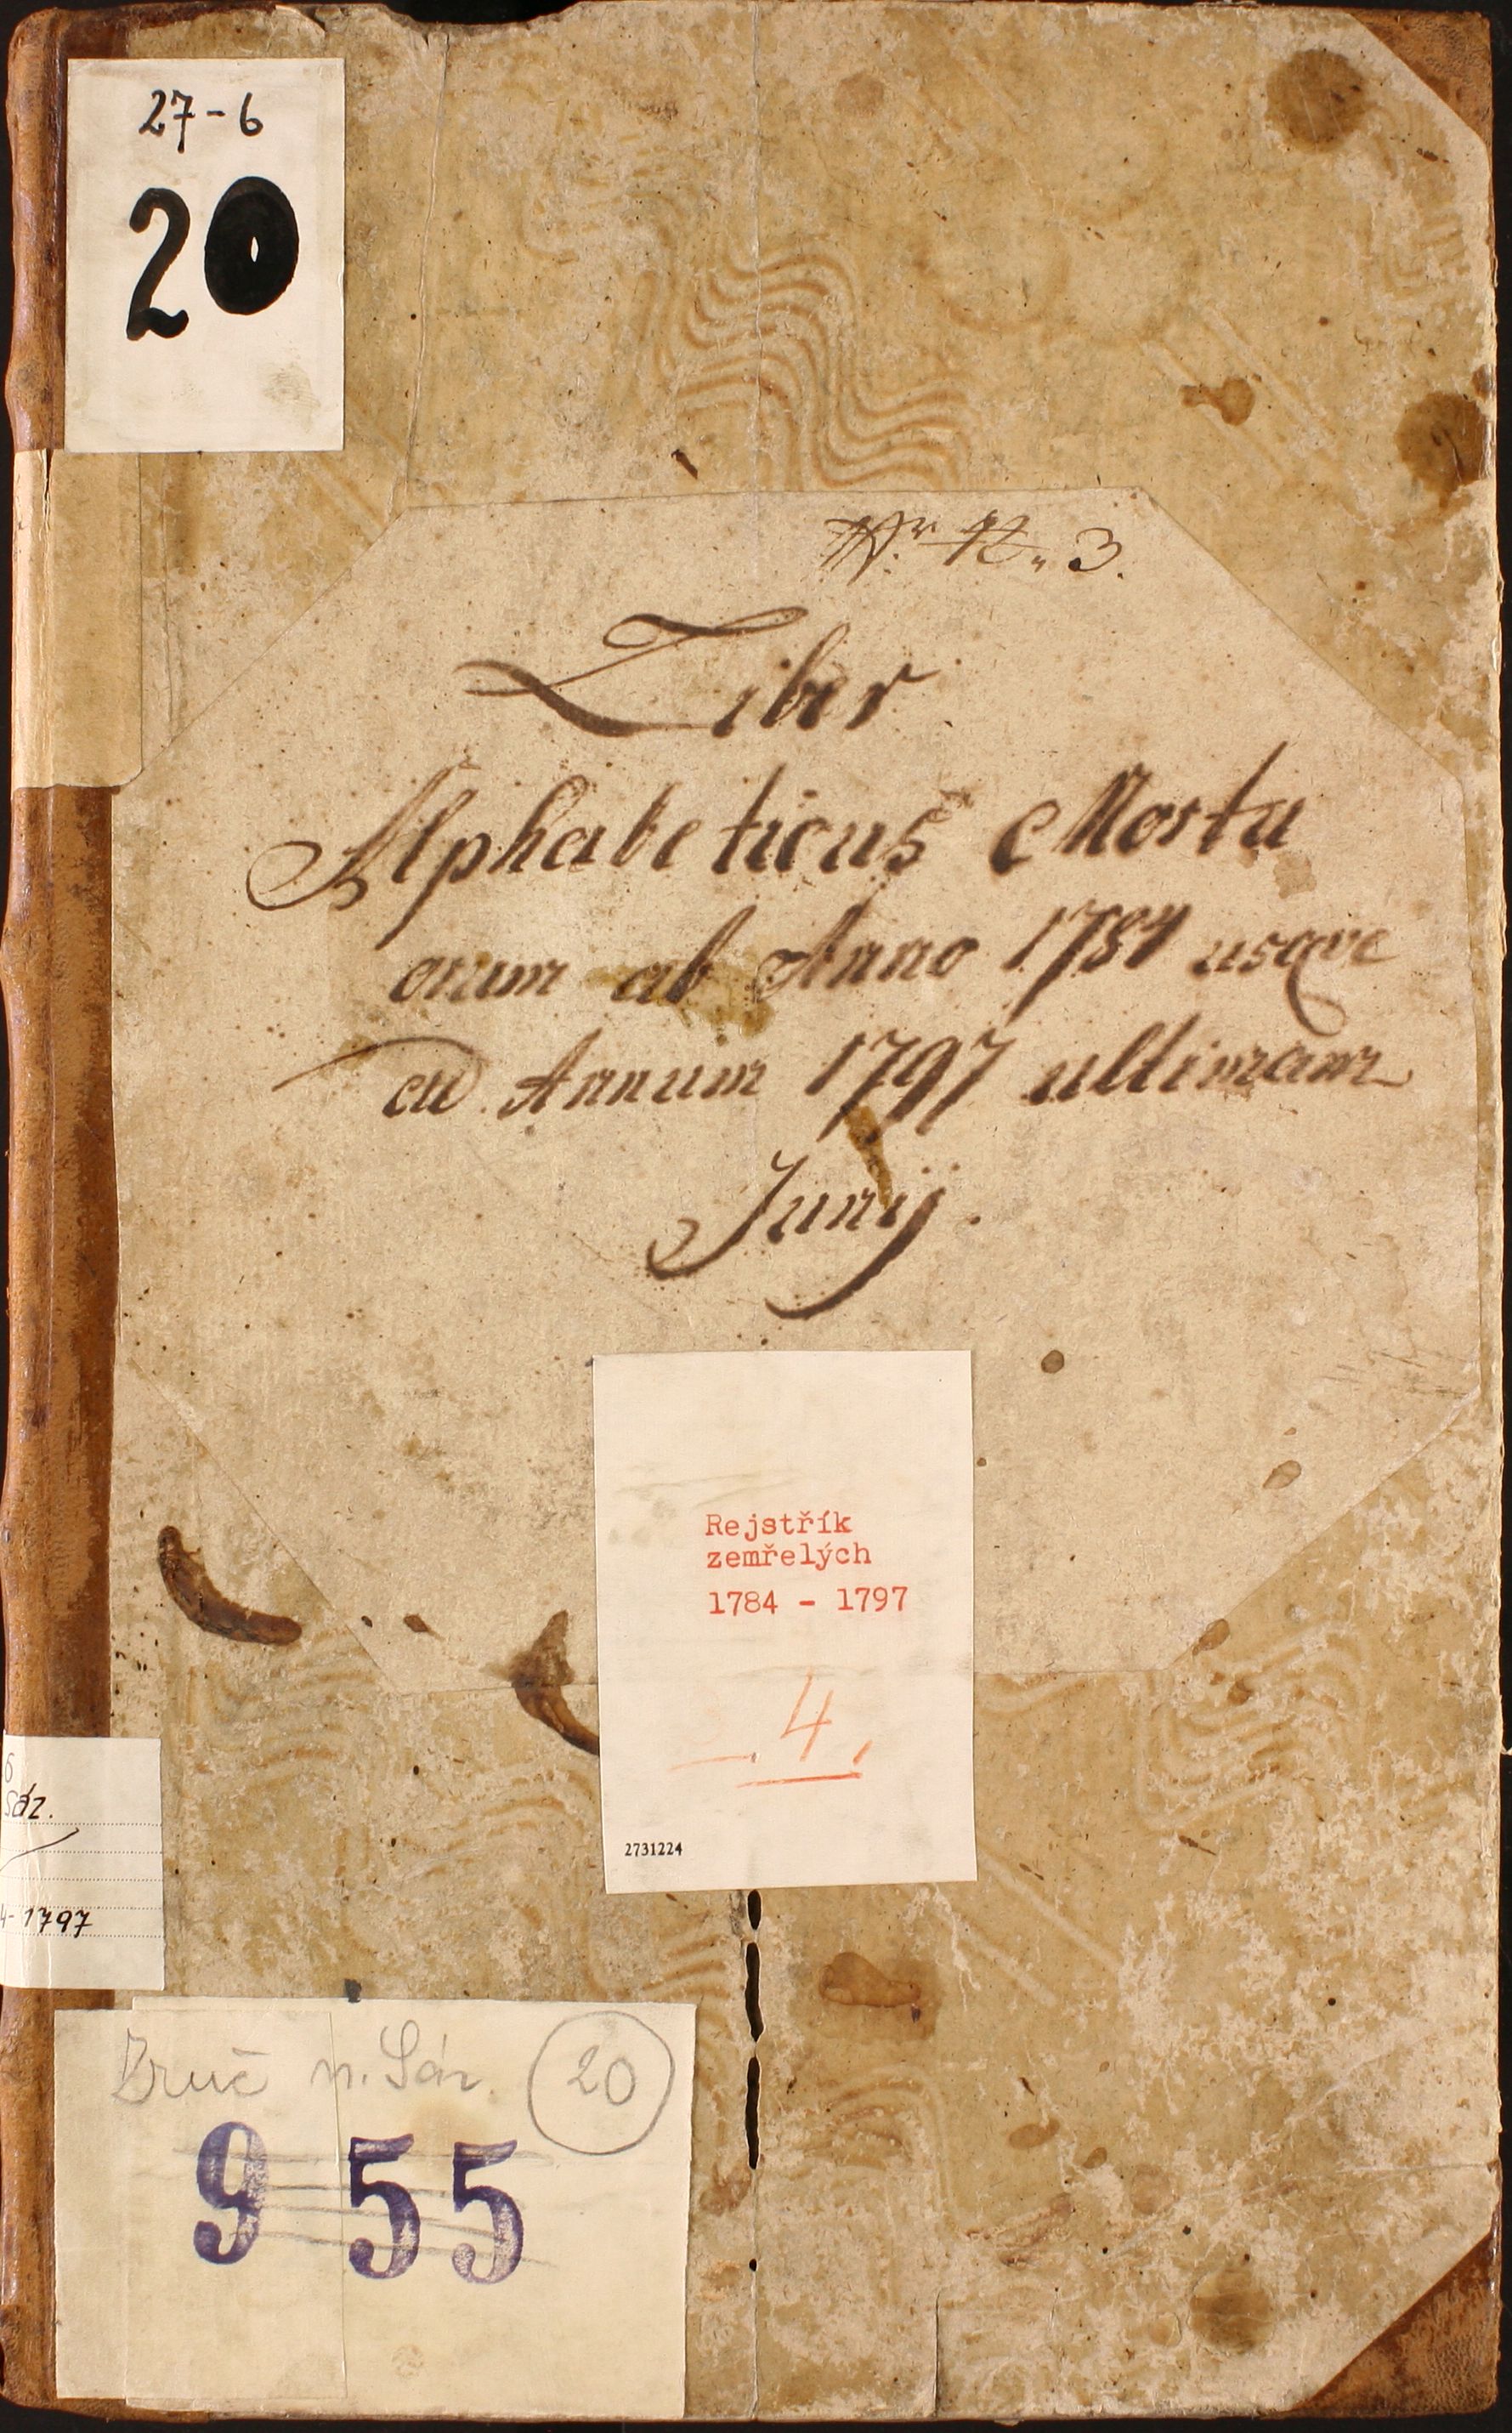 27-6
20
3.
Liber
Alphabeticus Mortu
orum ab Anno 1784 usque
ad Annum 1797 ultimam
Junij.
Rejstřík
zemřelých
1784 - 1797
4.
2731224
6
Sáz.
4-1797
Zruč n. Sáz. 20
9 55